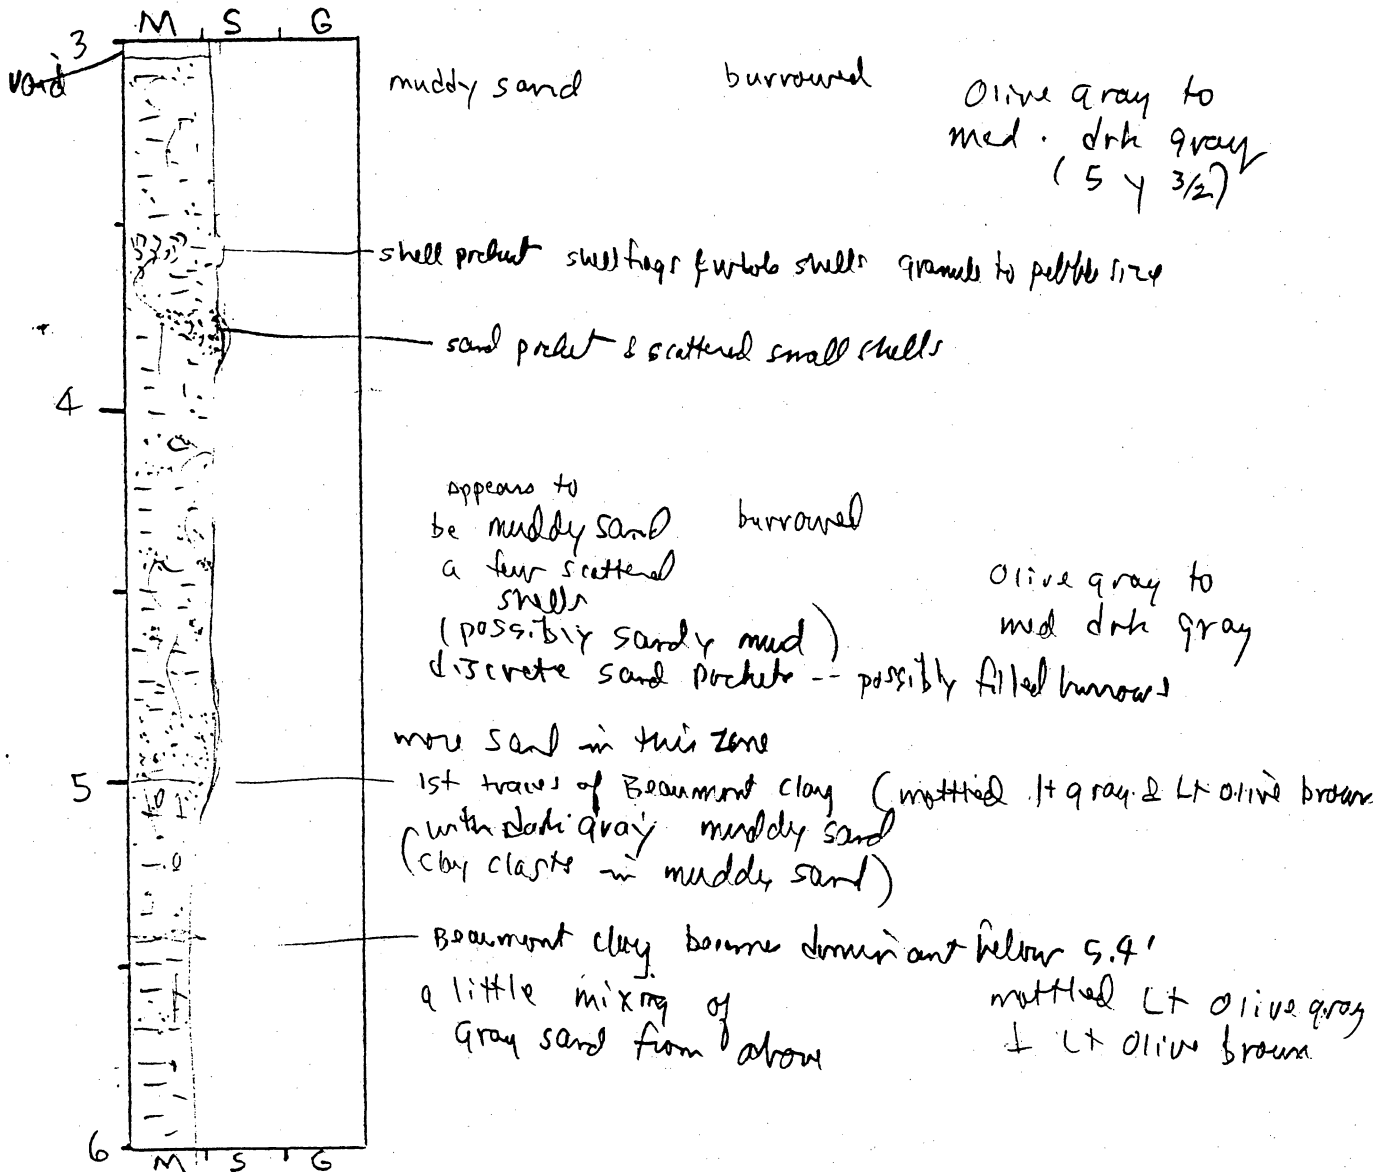 M S G
3
void
muddy sand burrowed Olive gray to
med. drk gray
(5 y 3/2)
shell pocket shell frags & whole shells granule to pebble size
sand pocket & scattered small shells
4
appears to
be muddy sand burrowed
a few scattered
shells
(possibly sandy mud)
Olive gray to
med drk gray
discrete sand pockets -- possibly filled burrows
more sand in this zone
5
1st traces of Beaumont clay (mottled lt gray & Lt olive brown
with dark gray muddy sand
(clay clasts in muddy sand)
Beaumont clay becomes dominant below 5.4'
a little mixing of
gray sand from above
mottled Lt olive gray
& Lt olive brown
6
M S G